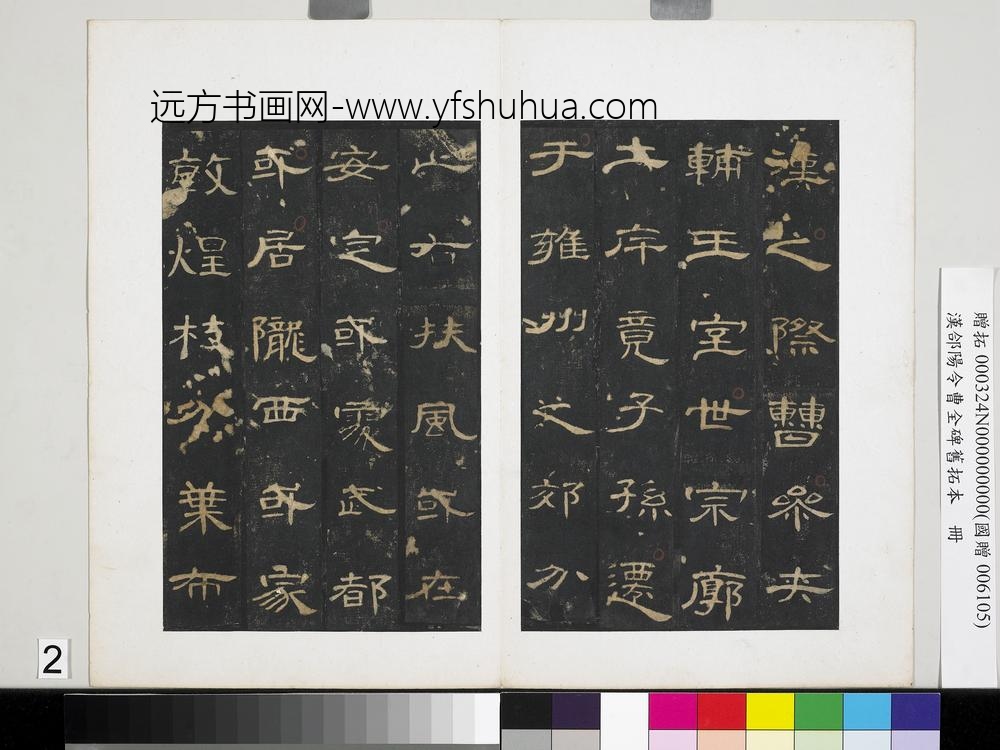 远方书画网-www.yfshuhua.com
漢之際曹參夾
輔王室世宗廓
土斥竟子孫遷
于雍州之郊分
止右扶風或在
安定或處武都
或居隴西或家
敦煌枝分葉布
贈拓 000324N000000000(國贈 006105)
漢郃陽令曹全碑舊拓本 冊
2